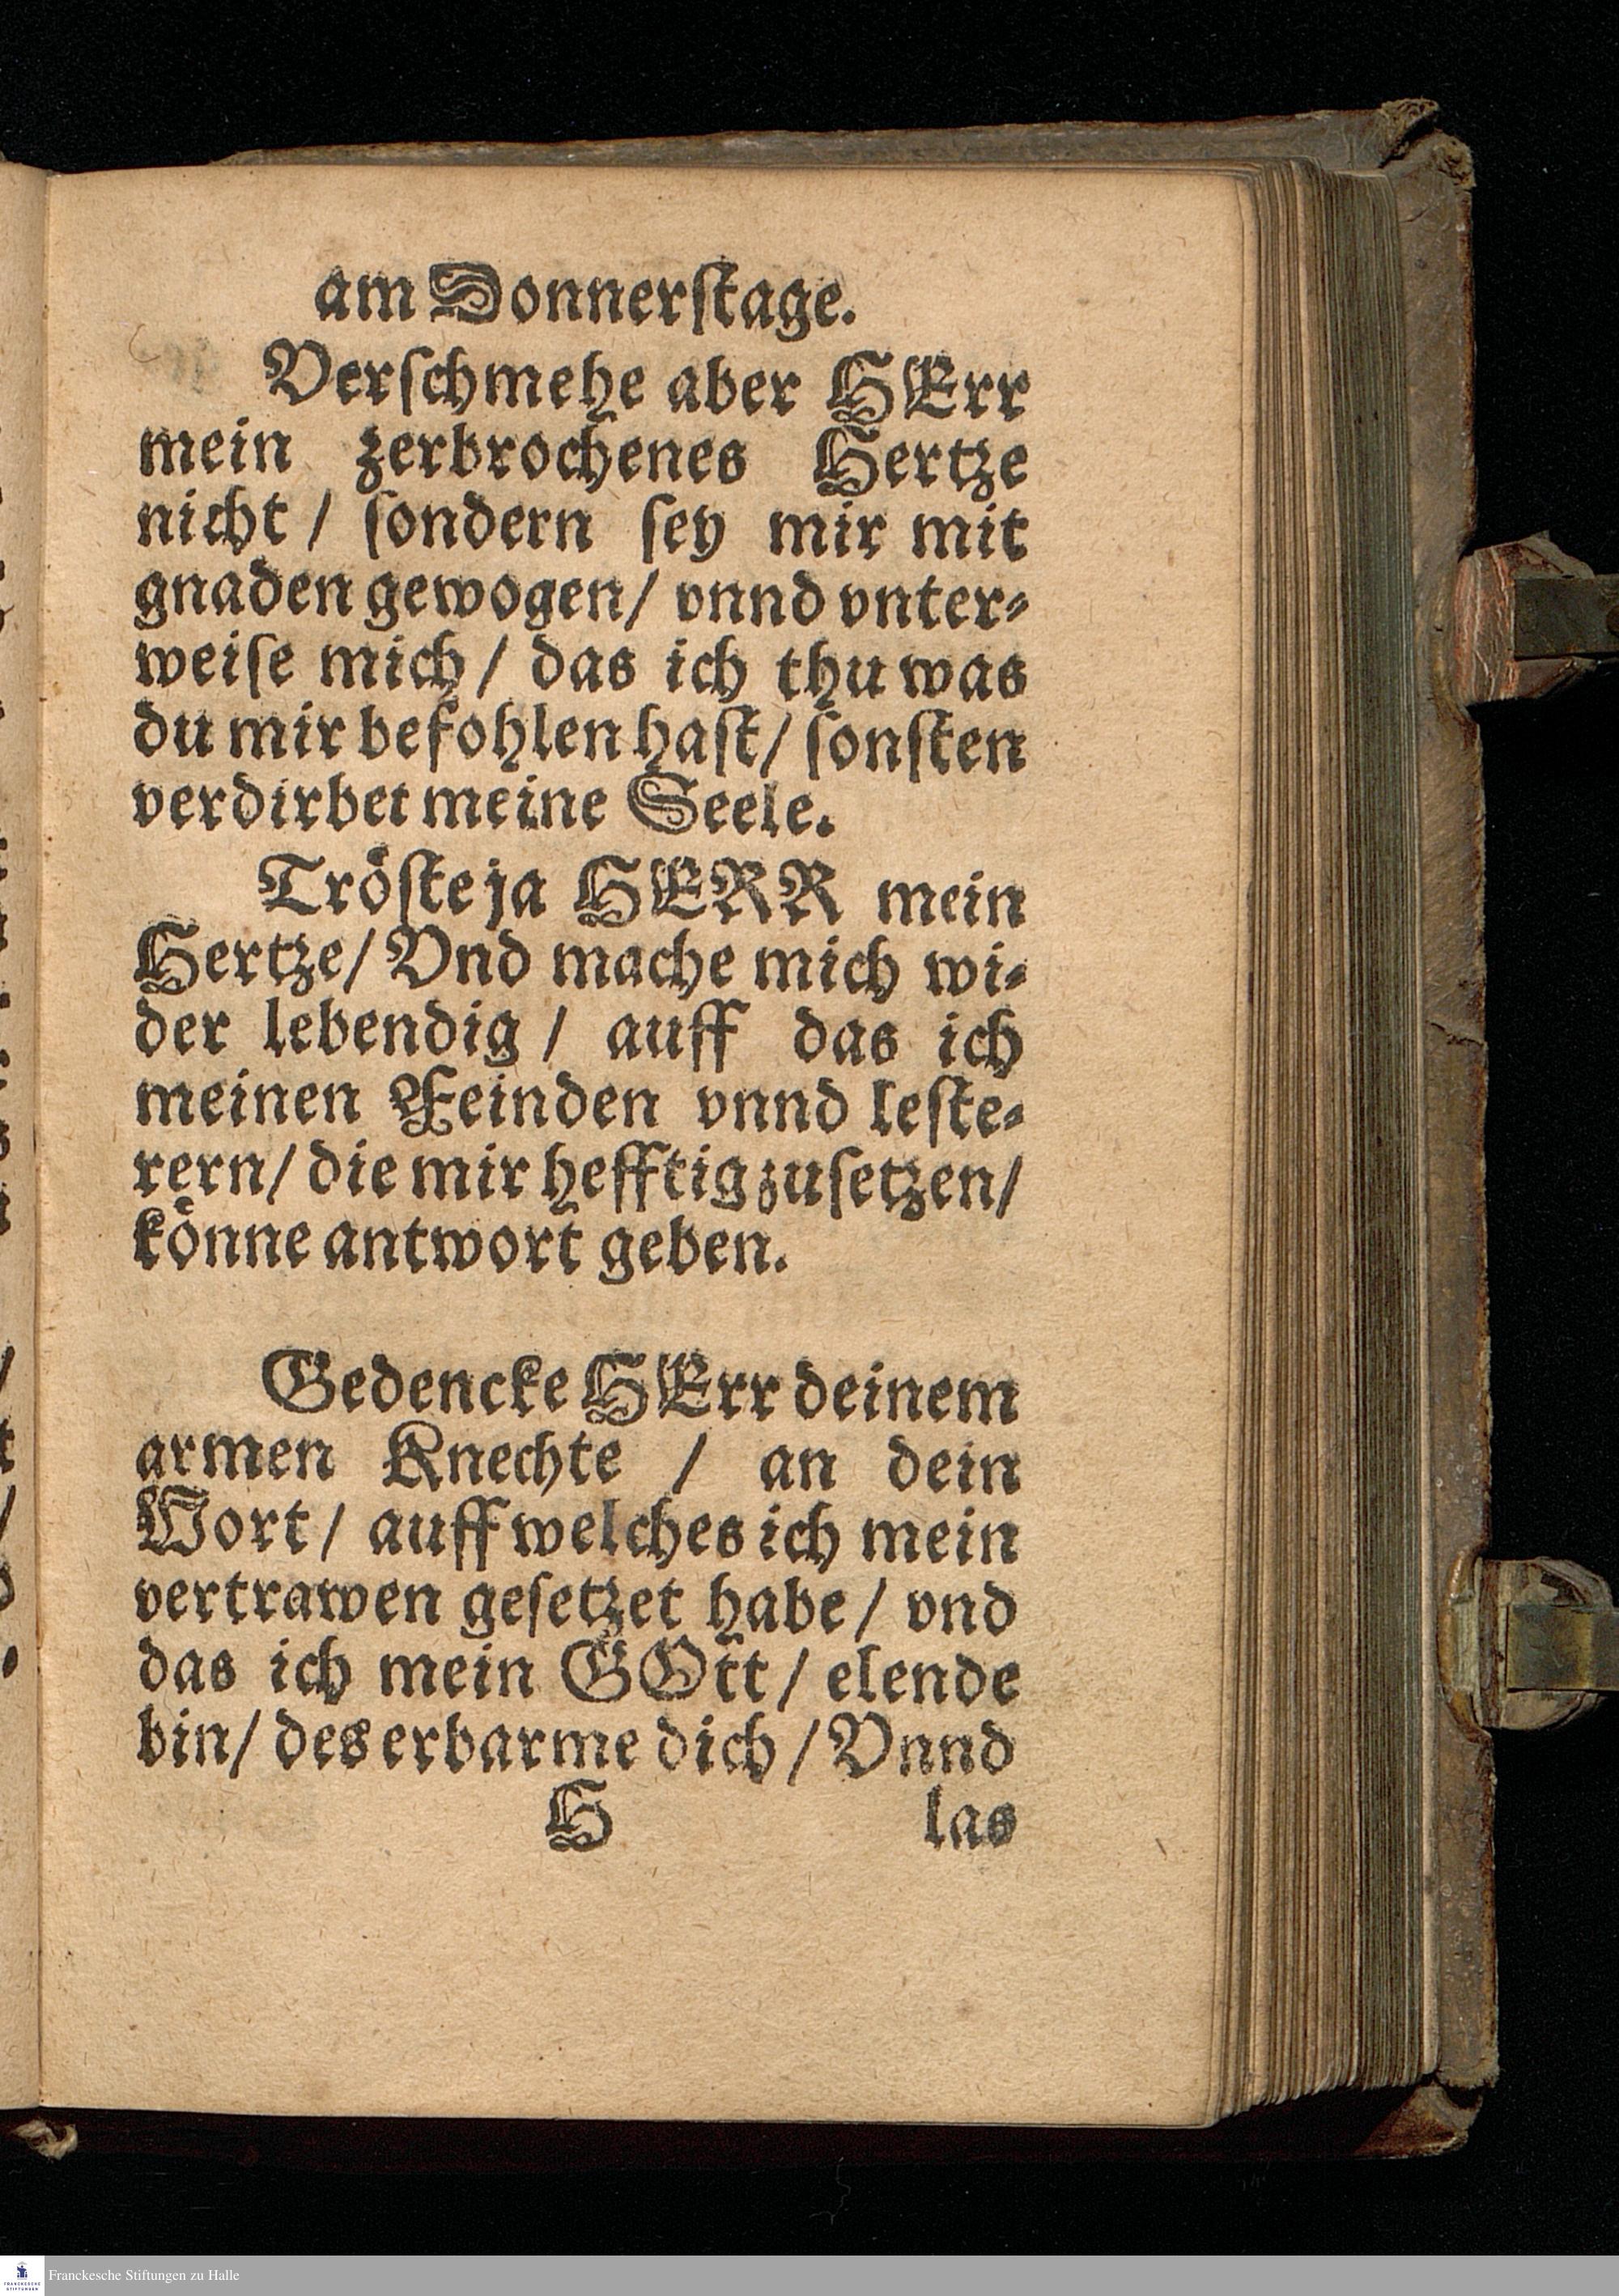 am Donnerſtage.
Verſchmehe aber HErr
mein zerbrochenes Hertze
nicht / ſondern ſey mir mit
gnaden gewogen / vnnd vnter⸗
weiſe mich / das ich thu was
du mir befohlen haſt / ſonſten
verdirbet meine Seele.
Tröſte ja HERR mein
Hertze / Vnd mache mich wi⸗
der lebendig / auff das ich
meinen Feinden vnnd leſte⸗
rern / die mir hefftig zuſetzen /
könne antwort geben.
Gedencke HErr deinem
armen Knechte / an dein
Wort / auff welches ich mein
vertrawen geſetzet habe / vnd
das ich mein GOtt / elende
bin / des erbarme dich / Vnnd
H las
Franckesche Stiftungen zu Halle